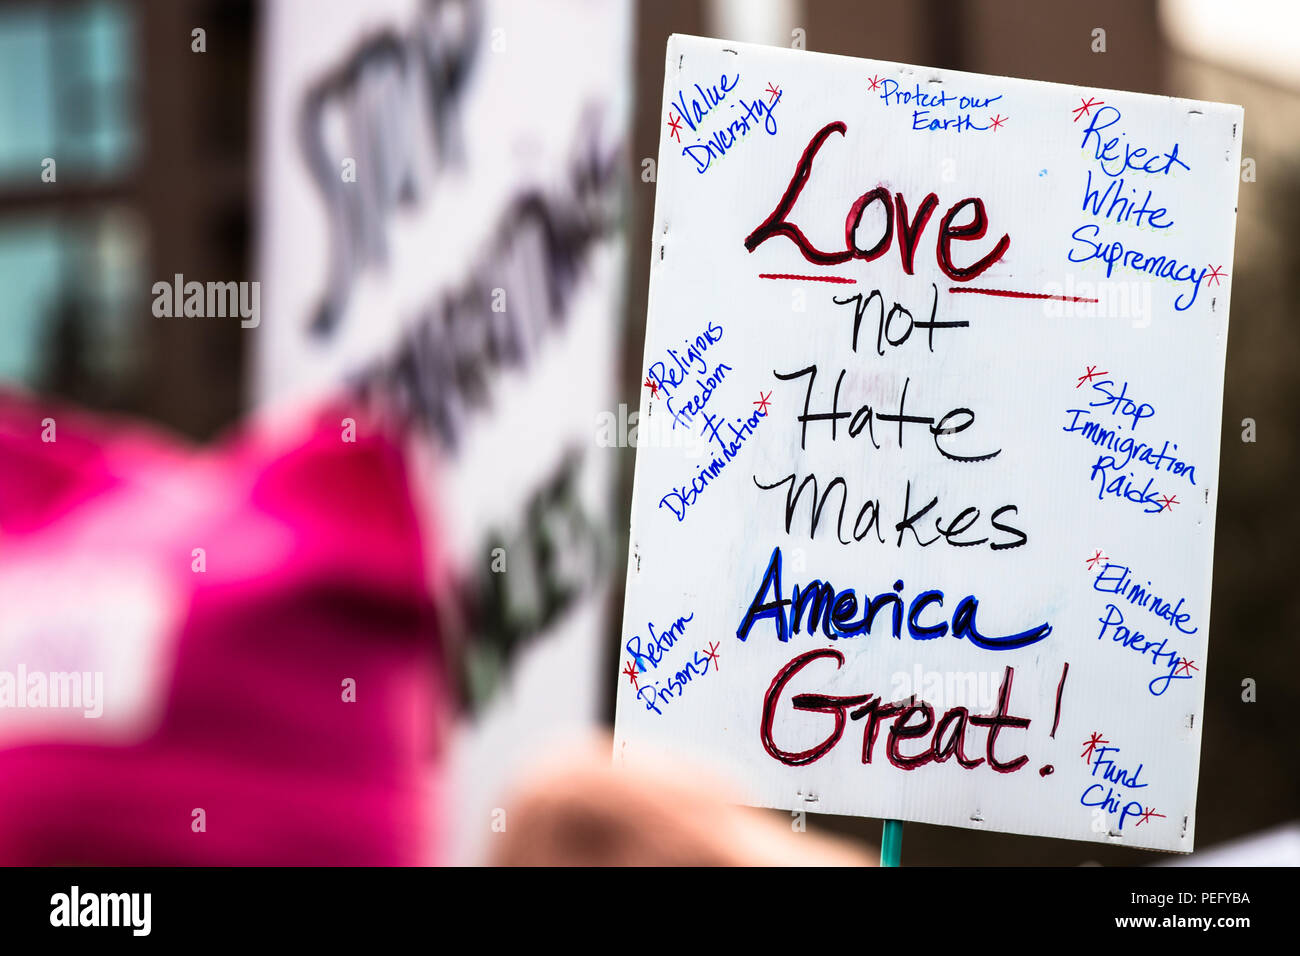 *Value
Diversity*
*Protect our
Earth*
*Reject
White
Supremacy*
Love
not
Hate
Makes
America
Great!
*Religious
freedom
≠
Discrimination*
*Stop
Immigration
Raids*
*Reform
Prisons*
*Eliminate
Poverty*
*Fund
Chip*
alamy
a
alamy stock photo
Image ID: PEFYBA
www.alamy.com